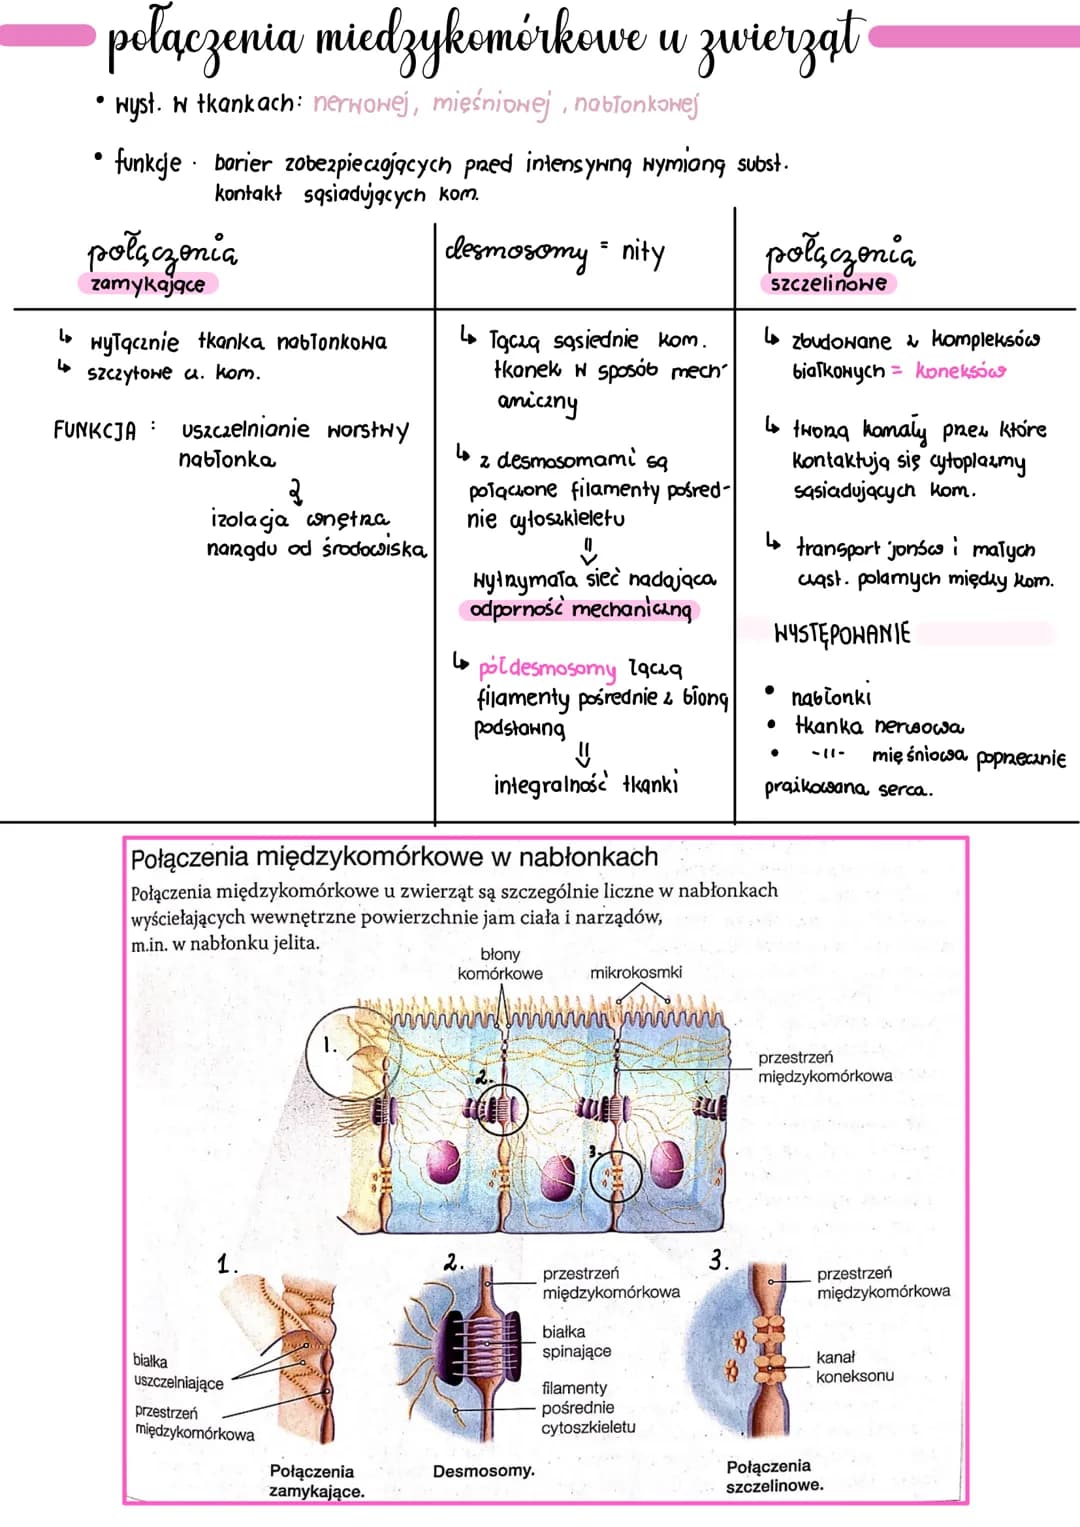 połączenia miedzykomórkowe u zwierząt
• wyst. w tkankach: nerwowej, mięśniowej, nabłonkowej
• funkcje · barier zabezpieczających przed intensywną wymianą subst.
kontakt sąsiadujących kom.
połączenia
zamykające
↳ wyłącznie tkanka nabłonkowa
↳ szczytowe cz. kom.
FUNKCJA : uszczelnianie warstwy
nabłonka
izolacja wnętrza
narządu od środowiska
desmosomy = nity
↳ łączą sąsiednie kom.
tkanek w sposób mech-
aniczny
↳ z desmosomami są
połączone filamenty pośred-
nie cytoszkieletu
⇓
wytrzymała sieć nadająca
odporność mechaniczną
↳ półdesmosomy łączą
filamenty pośrednie z błoną
podstawną
⇓
integralność tkanki
połączenia
szczelinowe
↳ zbudowane z kompleksów
białkowych = koneksów
↳ tworzą kanały przez które
kontaktują się cytoplazmy
sąsiadujących kom.
↳ transport jonów i małych
cząst. polarnych między kom.
WYSTĘPOWANIE
• nabłonki
• tkanka nerwowa
• -11- mięśniowa poprzecznie
prążkowana serca.
Połączenia międzykomórkowe w nabłonkach
Połączenia międzykomórkowe u zwierząt są szczególnie liczne w nabłonkach
wyściełających wewnętrzne powierzchnie jam ciała i narządów,
m.in. w nabłonku jelita.
błony
komórkowe
mikrokosmki
1.
2.
3.
przestrzeń
międzykomórkowa
1.
białka
uszczelniające
przestrzeń
międzykomórkowa
Połączenia
zamykające.
2.
przestrzeń
międzykomórkowa
białka
spinające
filamenty
pośrednie
cytoszkieletu
Desmosomy.
3.
przestrzeń
międzykomórkowa
kanał
koneksonu
Połączenia
szczelinowe.